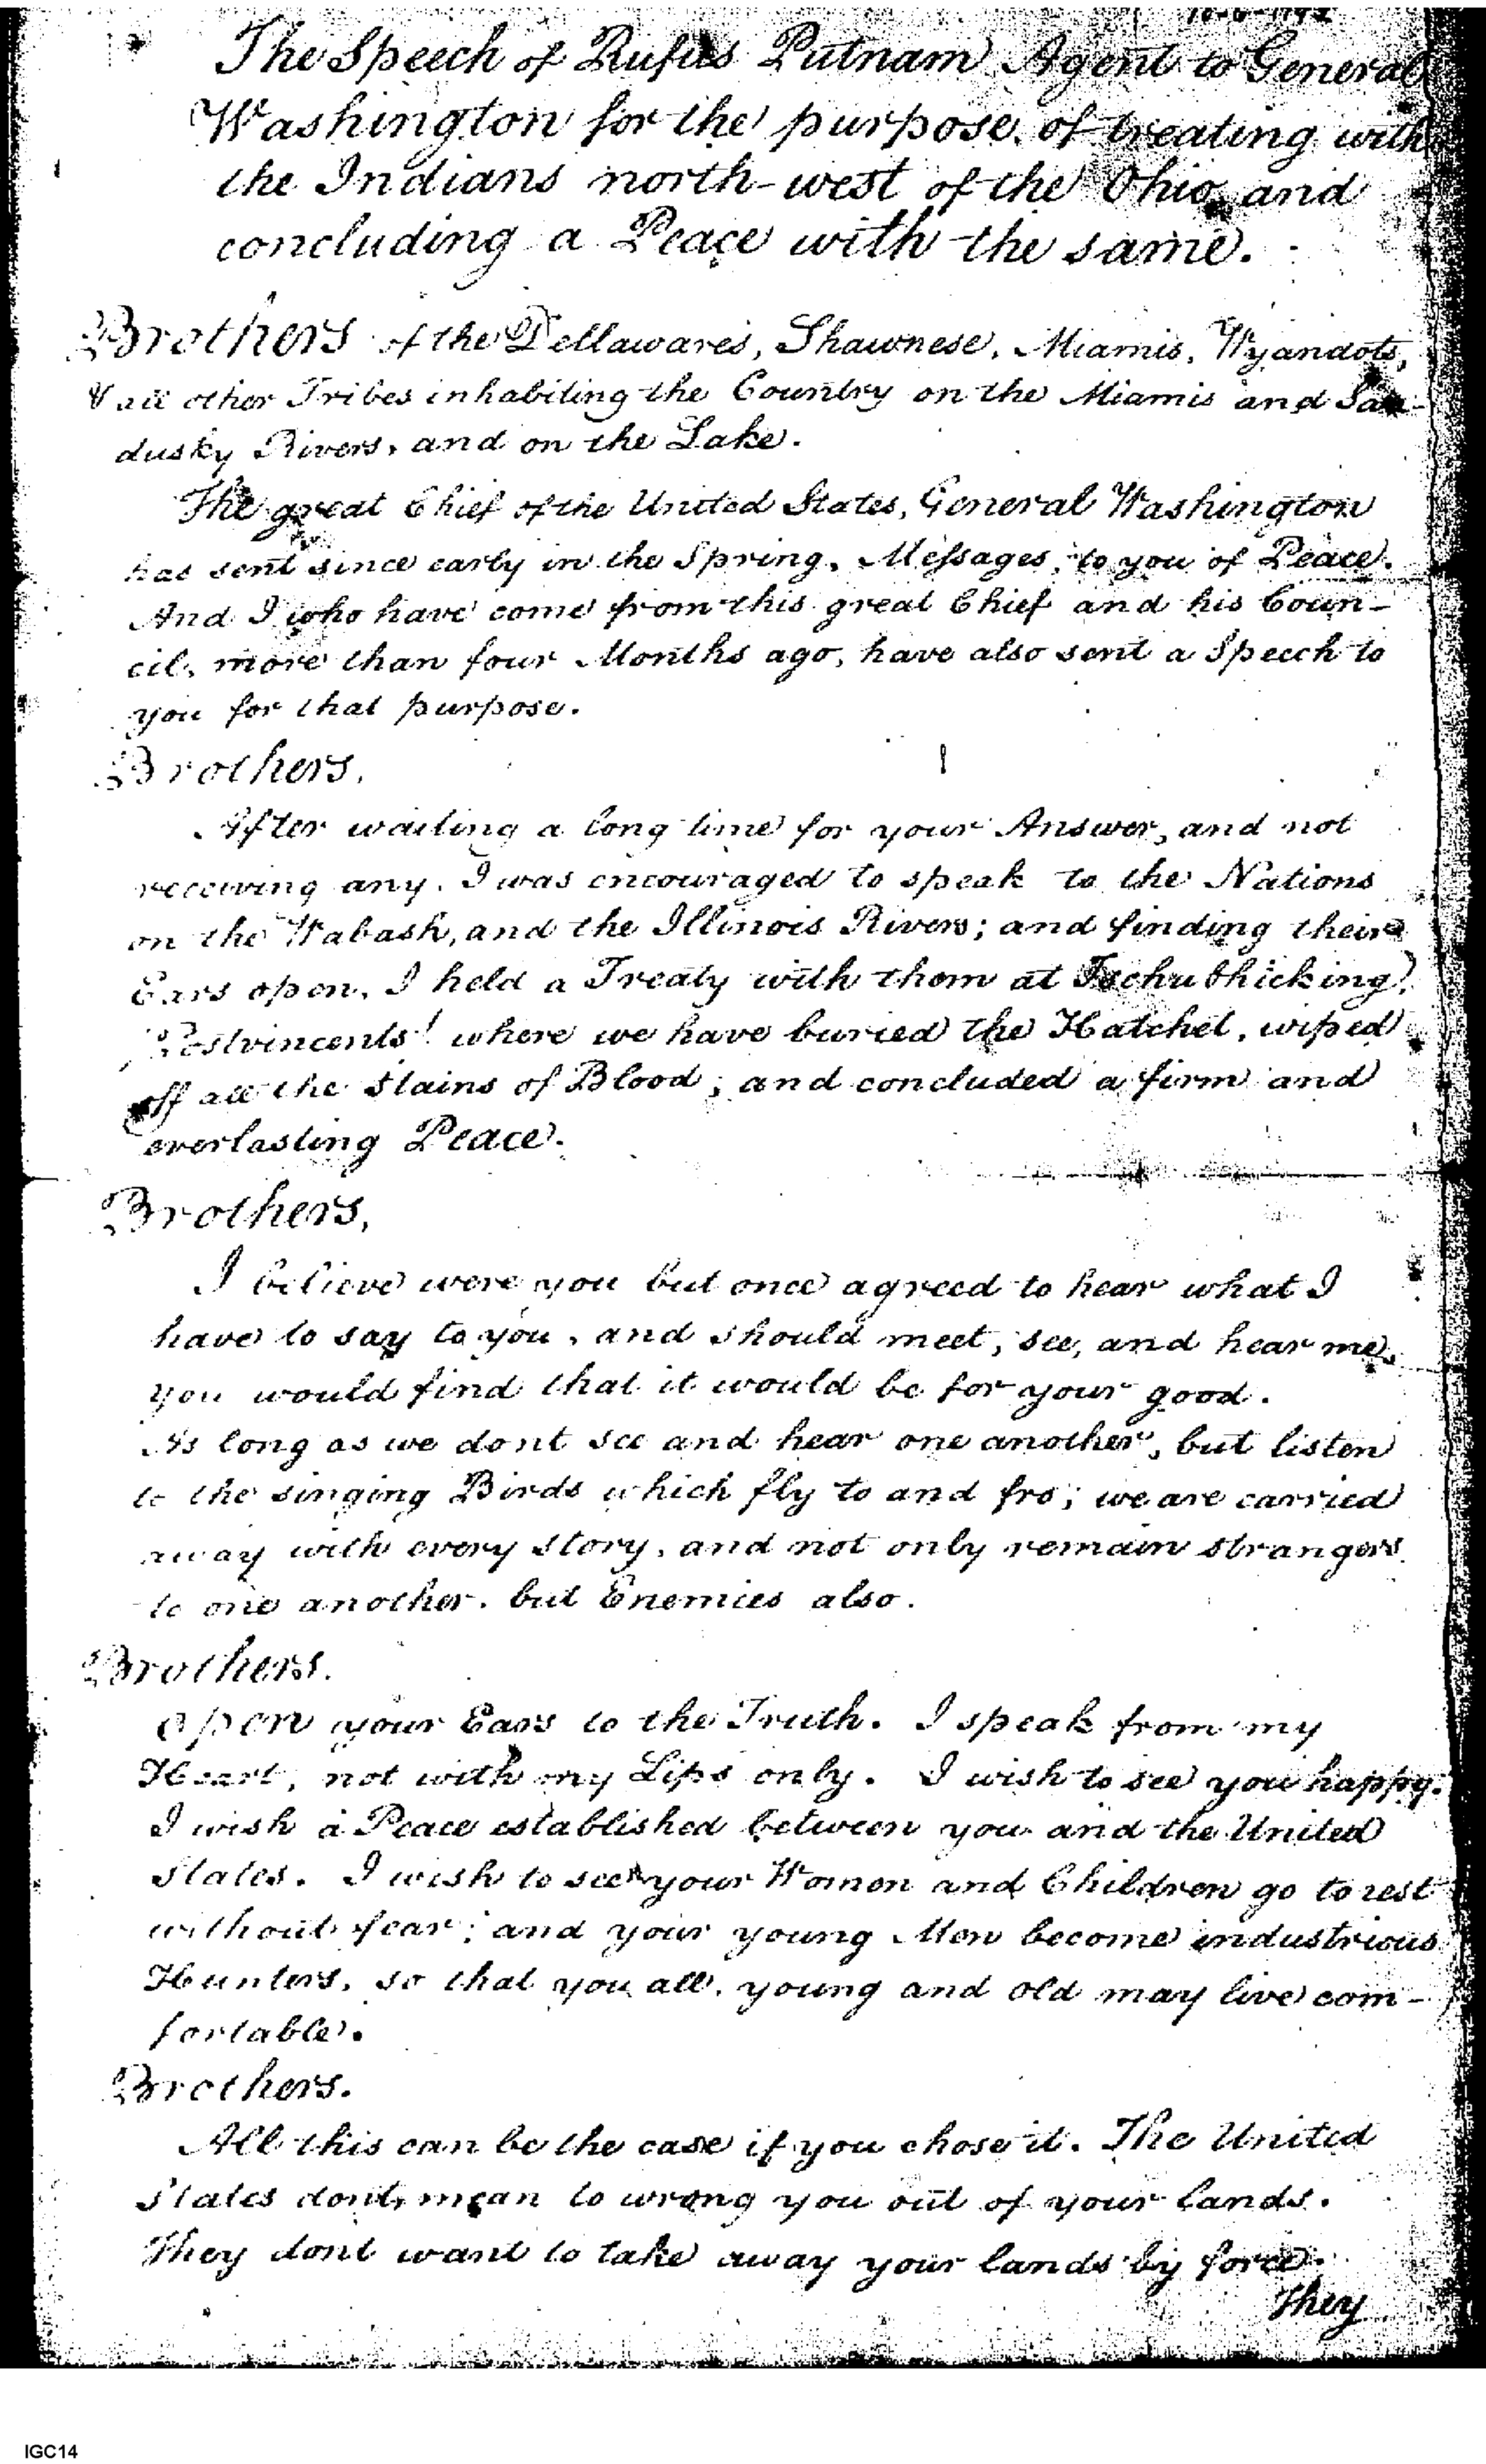 The Speech of Rufus Putnam Agent to General
Washington for the purpose of treating with
the Indians north-west of the Ohio, and
concluding a Peace with the same.
Brothers of the Dellawares, Shawnese, Miamis, Wyandots,
& all other Tribes inhabiting the Country on the Miamis and San-
dusky Rivers, and on the Lake.
The great Chief of the United States, General Washington
has sent since early in the Spring, Messages, to you of Peace.
And I who have come from this great Chief and his Coun-
cil, more than four Months ago, have also sent a Speech to
you for that purpose.
Brothers,
After waiting a long time for your Answer, and not
receiving any, I was encouraged to speak to the Nations
on the Wabash, and the Illinois Rivers; and finding their
Ears open, I held a Treaty with them at
Postvincents! where we have buried the Hatchet, wiped
off all the Stains of Blood, and concluded a firm and
everlasting Peace.
Brothers,
I believe were you but once agreed to hear what I
have to say to you, and should meet, see, and hear me,
you would find that it would be for your good.
As long as we dont see and hear one another, but listen
to the singing Birds which fly to and fro; we are carried
away with every story, and not only remain strangers
to one another, but Enemies also.
Brothers.
Open your Ears to the Truth. I speak from my
Heart, not with my Lips only. I wish to see you happy.
I wish a Peace established between you and the United
States. I wish to see your Women and Children go to rest
without fear; and your young Men become industrious
Hunters, so that you all, young and old may live com-
fortable.
Brothers.
All this can be the case if you chose it. The United
States dont mean to wrong you out of your lands.
They dont want to take away your lands by force.
They
IGC14